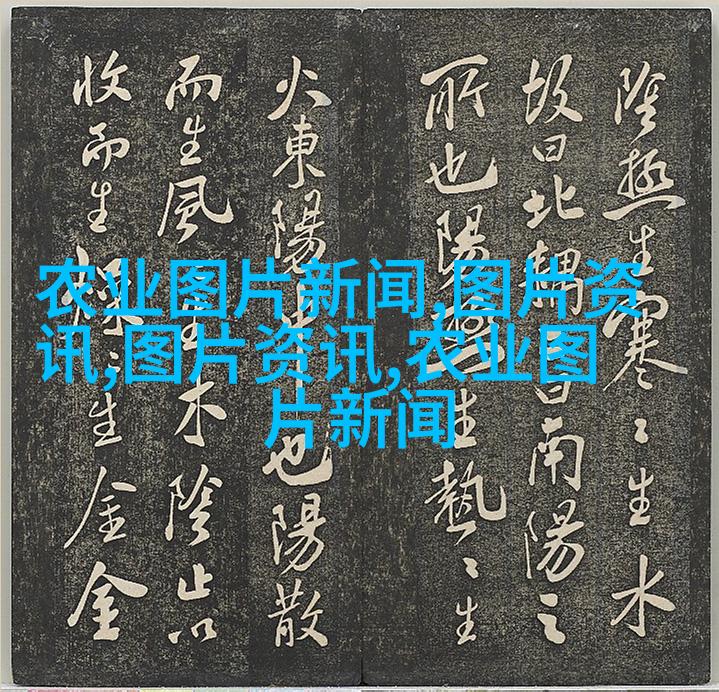 陰極生寒〻生水
故曰北南陽之
所也陽生熱〻生
火東陽也陽散
而生風生木陰止以
收而生燥〻生金金
农业图片新闻,图片资
讯,图片资讯,农业图
片新闻